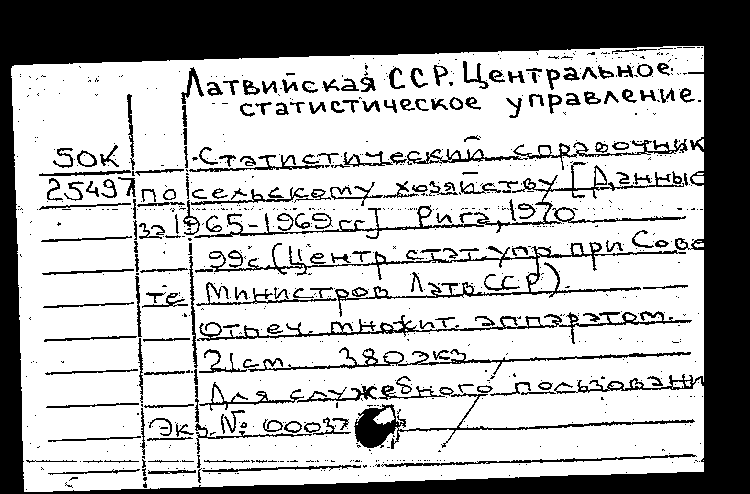 Латвийская ССР. Центральное
статистическое управление.
50К Статистический справочник
25497 по сельскому хозяйству [Данные
за 1965-1969 гг] Рига, 1970
99с (Центр стат. упр при Сове
те Министров Латв. ССР).
отпеч. множит. аппаратом.
21 см. 380 экз
Для служебного пользовани
Экз. № 00037